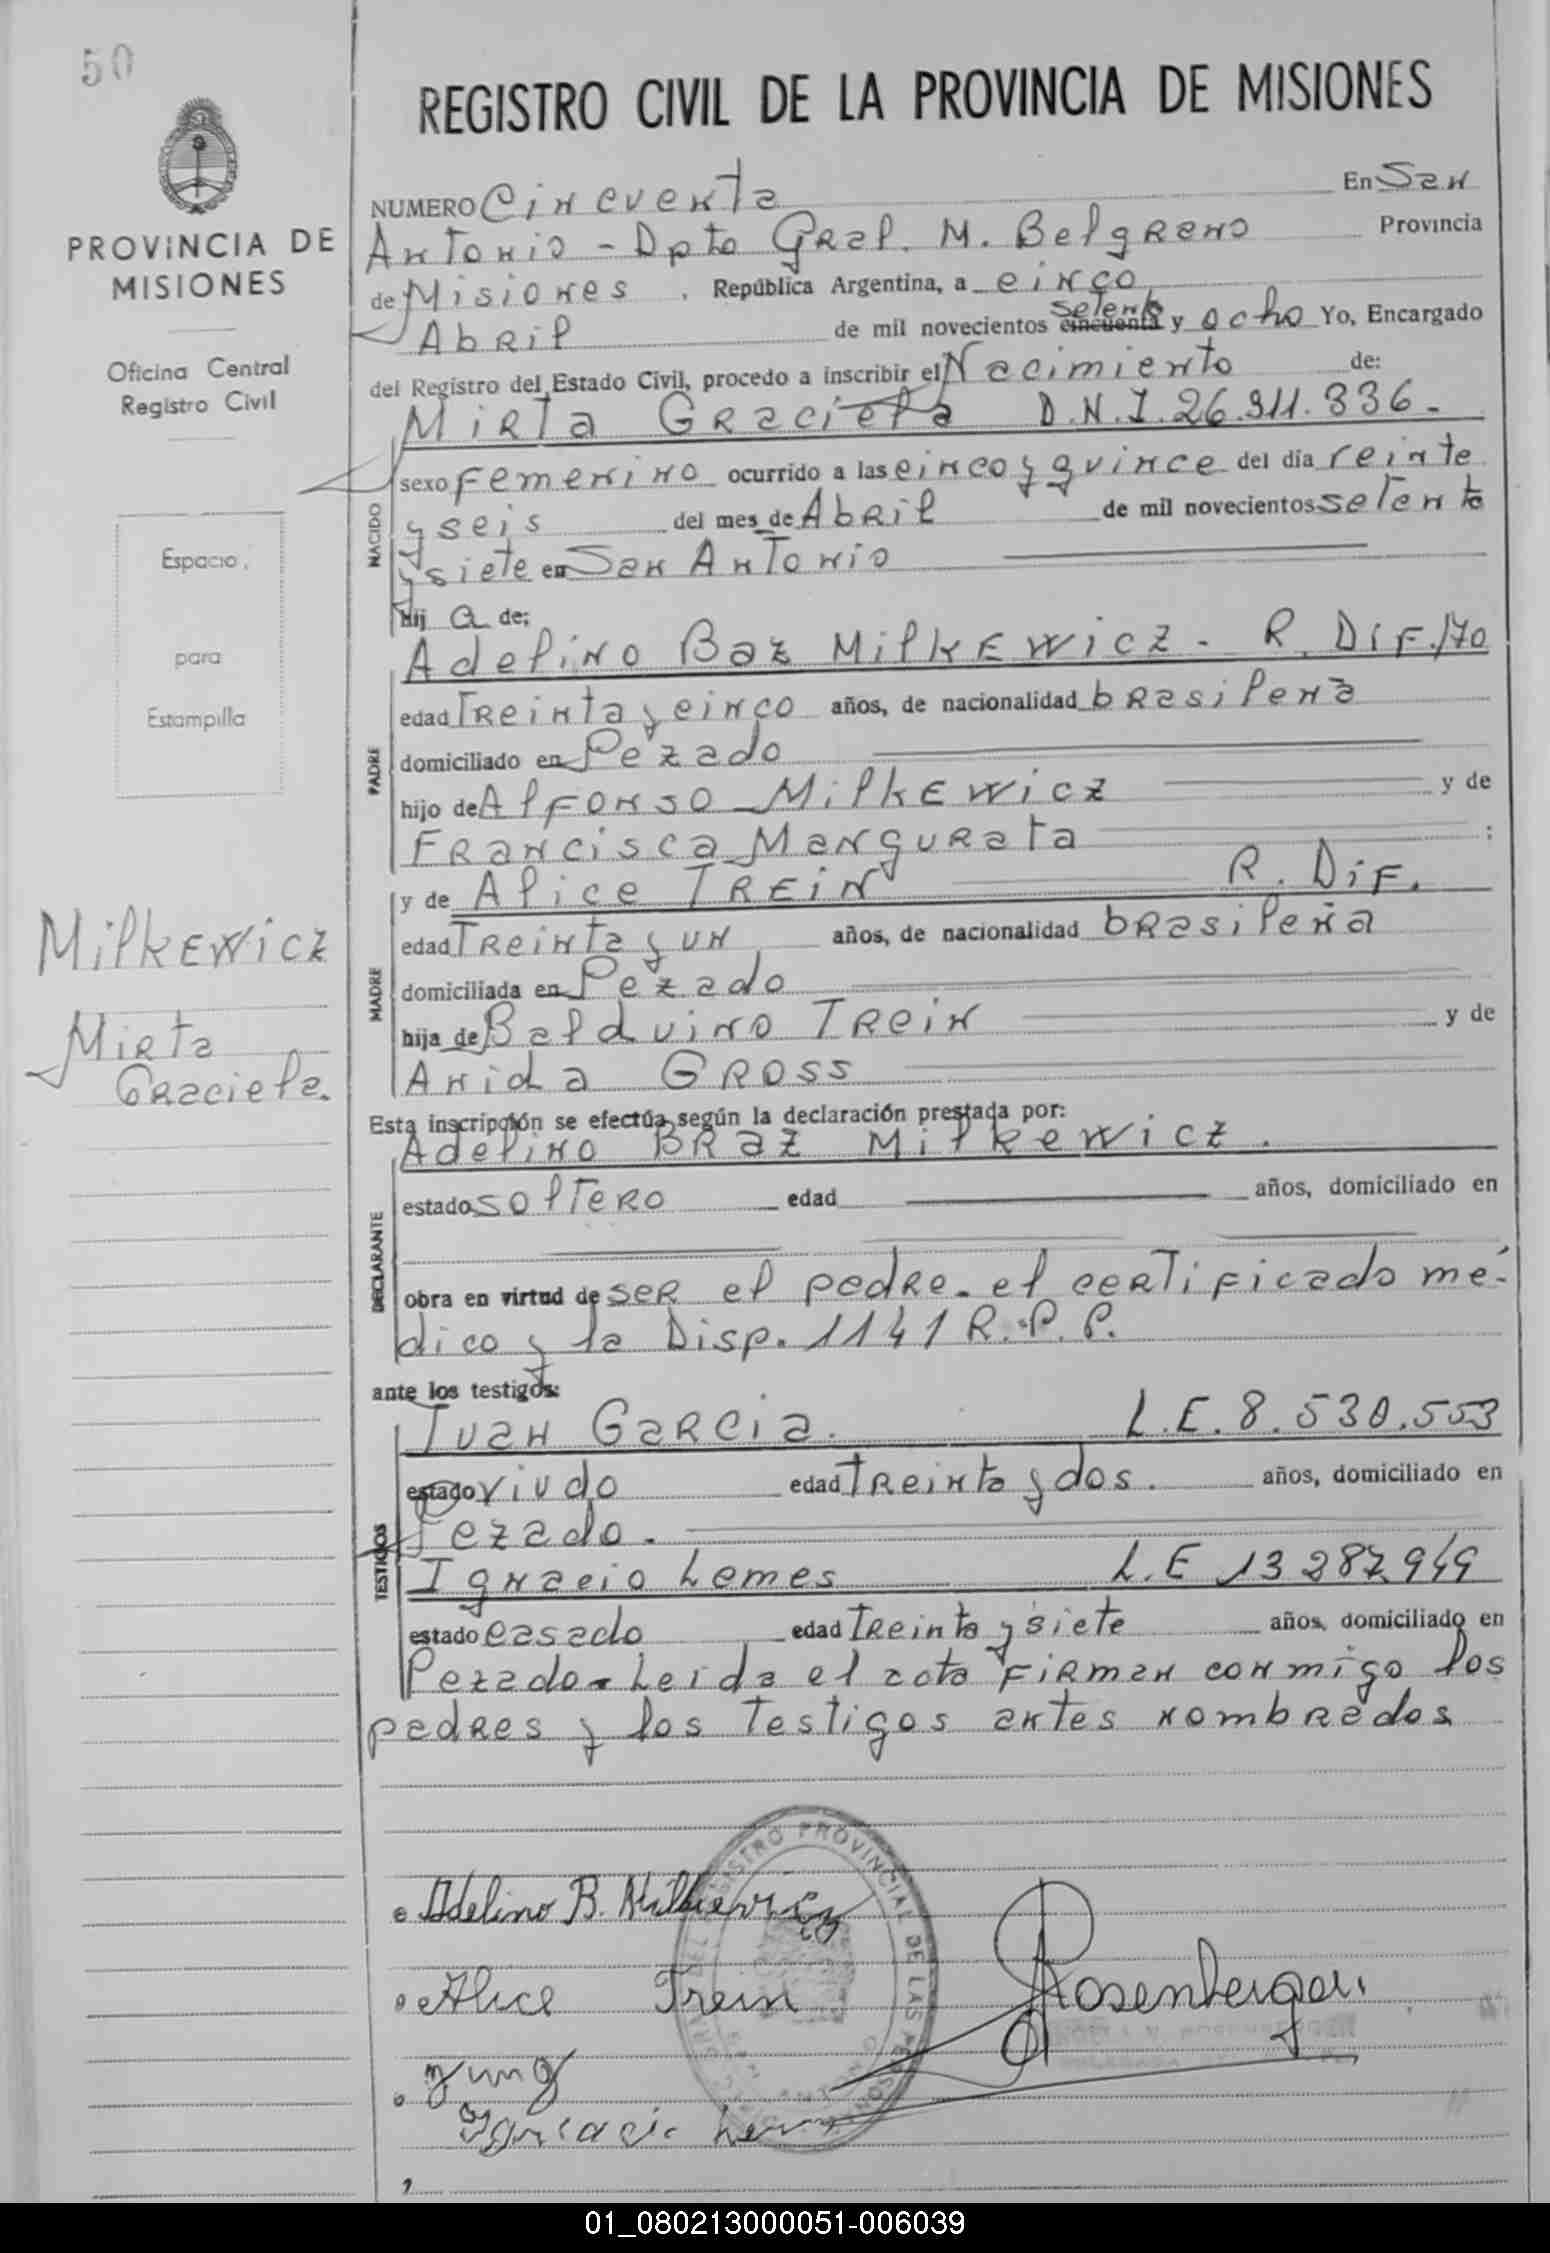 50
REGISTRO CIVIL DE LA PROVINCIA DE MISIONES
PROVINCIA DE
MISIONES
Oficina Central
Registro Civil
Espacio
para
Estampilla
Milkewicz
Mirta
Graciela.
NUMERO Cincuenta En San
Antonio - Dpto Gral. M. Belgrano Provincia
de Misiones , República Argentina, a cinco
Abril de mil novecientos cincuenta setenta y ocho Yo, Encargado
del Registro del Estado Civil, procedo a inscribir el Nacimiento de:
Mirta Graciela D.N.I. 26.911.336.-
NACIDO
sexo Femenino ocurrido a las cinco y quince del día veinte
y seis del mes de Abril de mil novecientos setenta
y siete en San Antonio
hij a de:
Adelino Baz Milkewicz - R. Dif./70
PADRE
edad Treinta y cinco años, de nacionalidad brasileña
domiciliado en Pozado
hijo de Alfonso Milkewicz y de
Francisca Mangurata ;
y de Alice Trein R. Dif.
MADRE
edad Treinta y un años, de nacionalidad brasileña
domiciliada en Pozado
hija de Balduino Trein y de
Anida Gross
Esta inscripción se efectúa según la declaración prestada por:
Adelino Braz Milkewicz.
DECLARANTE
estado soltero edad años, domiciliado en
obra en virtud de ser el padre. el certificado mé-
dico y la Disp. 1141 R.P.P.
ante los testigos:
Juan Garcia. L.E. 8.530.553
TESTIGOS
estado viudo edad Treinta y dos. años, domiciliado en
Pozado.
Ignacio Lemes L.E 13 287.949
estado casado edad Treinta y siete años, domiciliado en
Pozado. Leida el acta firman conmigo los
padres y los testigos antes nombrados
Adelino B. Milkiewicz
Alice Trein
Rosenberger
Ignacio Lem
REGISTRO PROVINCIAL DE LAS PERSONAS
01_080213000051-006039